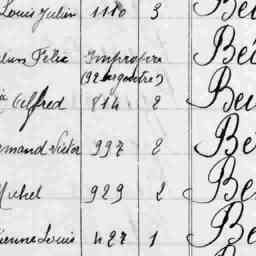 Louis Julien 1110 3 Be
Félix Impropre Be
(92 bergentre)
Alfred 814 2 Be
rmand Victor 997 2 Be
Michel 929 2 Be
ienne Louis 427 1 Be